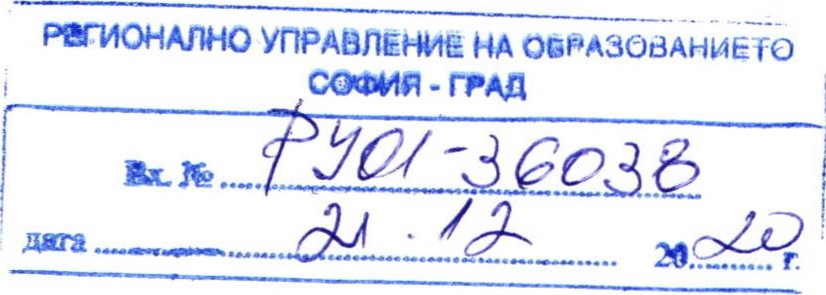 РЕГИОНАЛНО УПРАВЛЕНИЕ НА ОБРАЗОВАНИЕТО
СОФИЯ - ГРАД
Вх. № РУ01-36038
дата 21.12 2020 г.